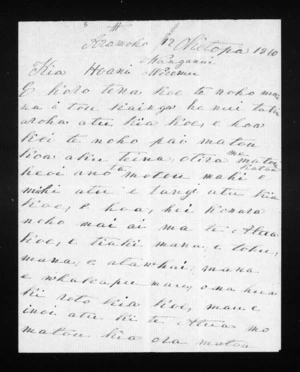 Aramoho 12 Oketopa 1870
Wanganui
Kia Hoani
E koro tena koe te noho ma
na i tou kainga he nui tatu
aroha atu kia koe, e hoa
kei te noho pai matou
koa aku teina, otira matou
heoi ano ta matou mahi e
mihi atu e tangi atu kia
koe, e hoa, hei konara
noho mai ai ma te Atua
koe, e tiaki mana, e tohu,
mana, e atawhai, mana
e whakapu mai, ona
ki roto kia koe, maue
inoi atu ki te Atua mo
matou kia ora matou